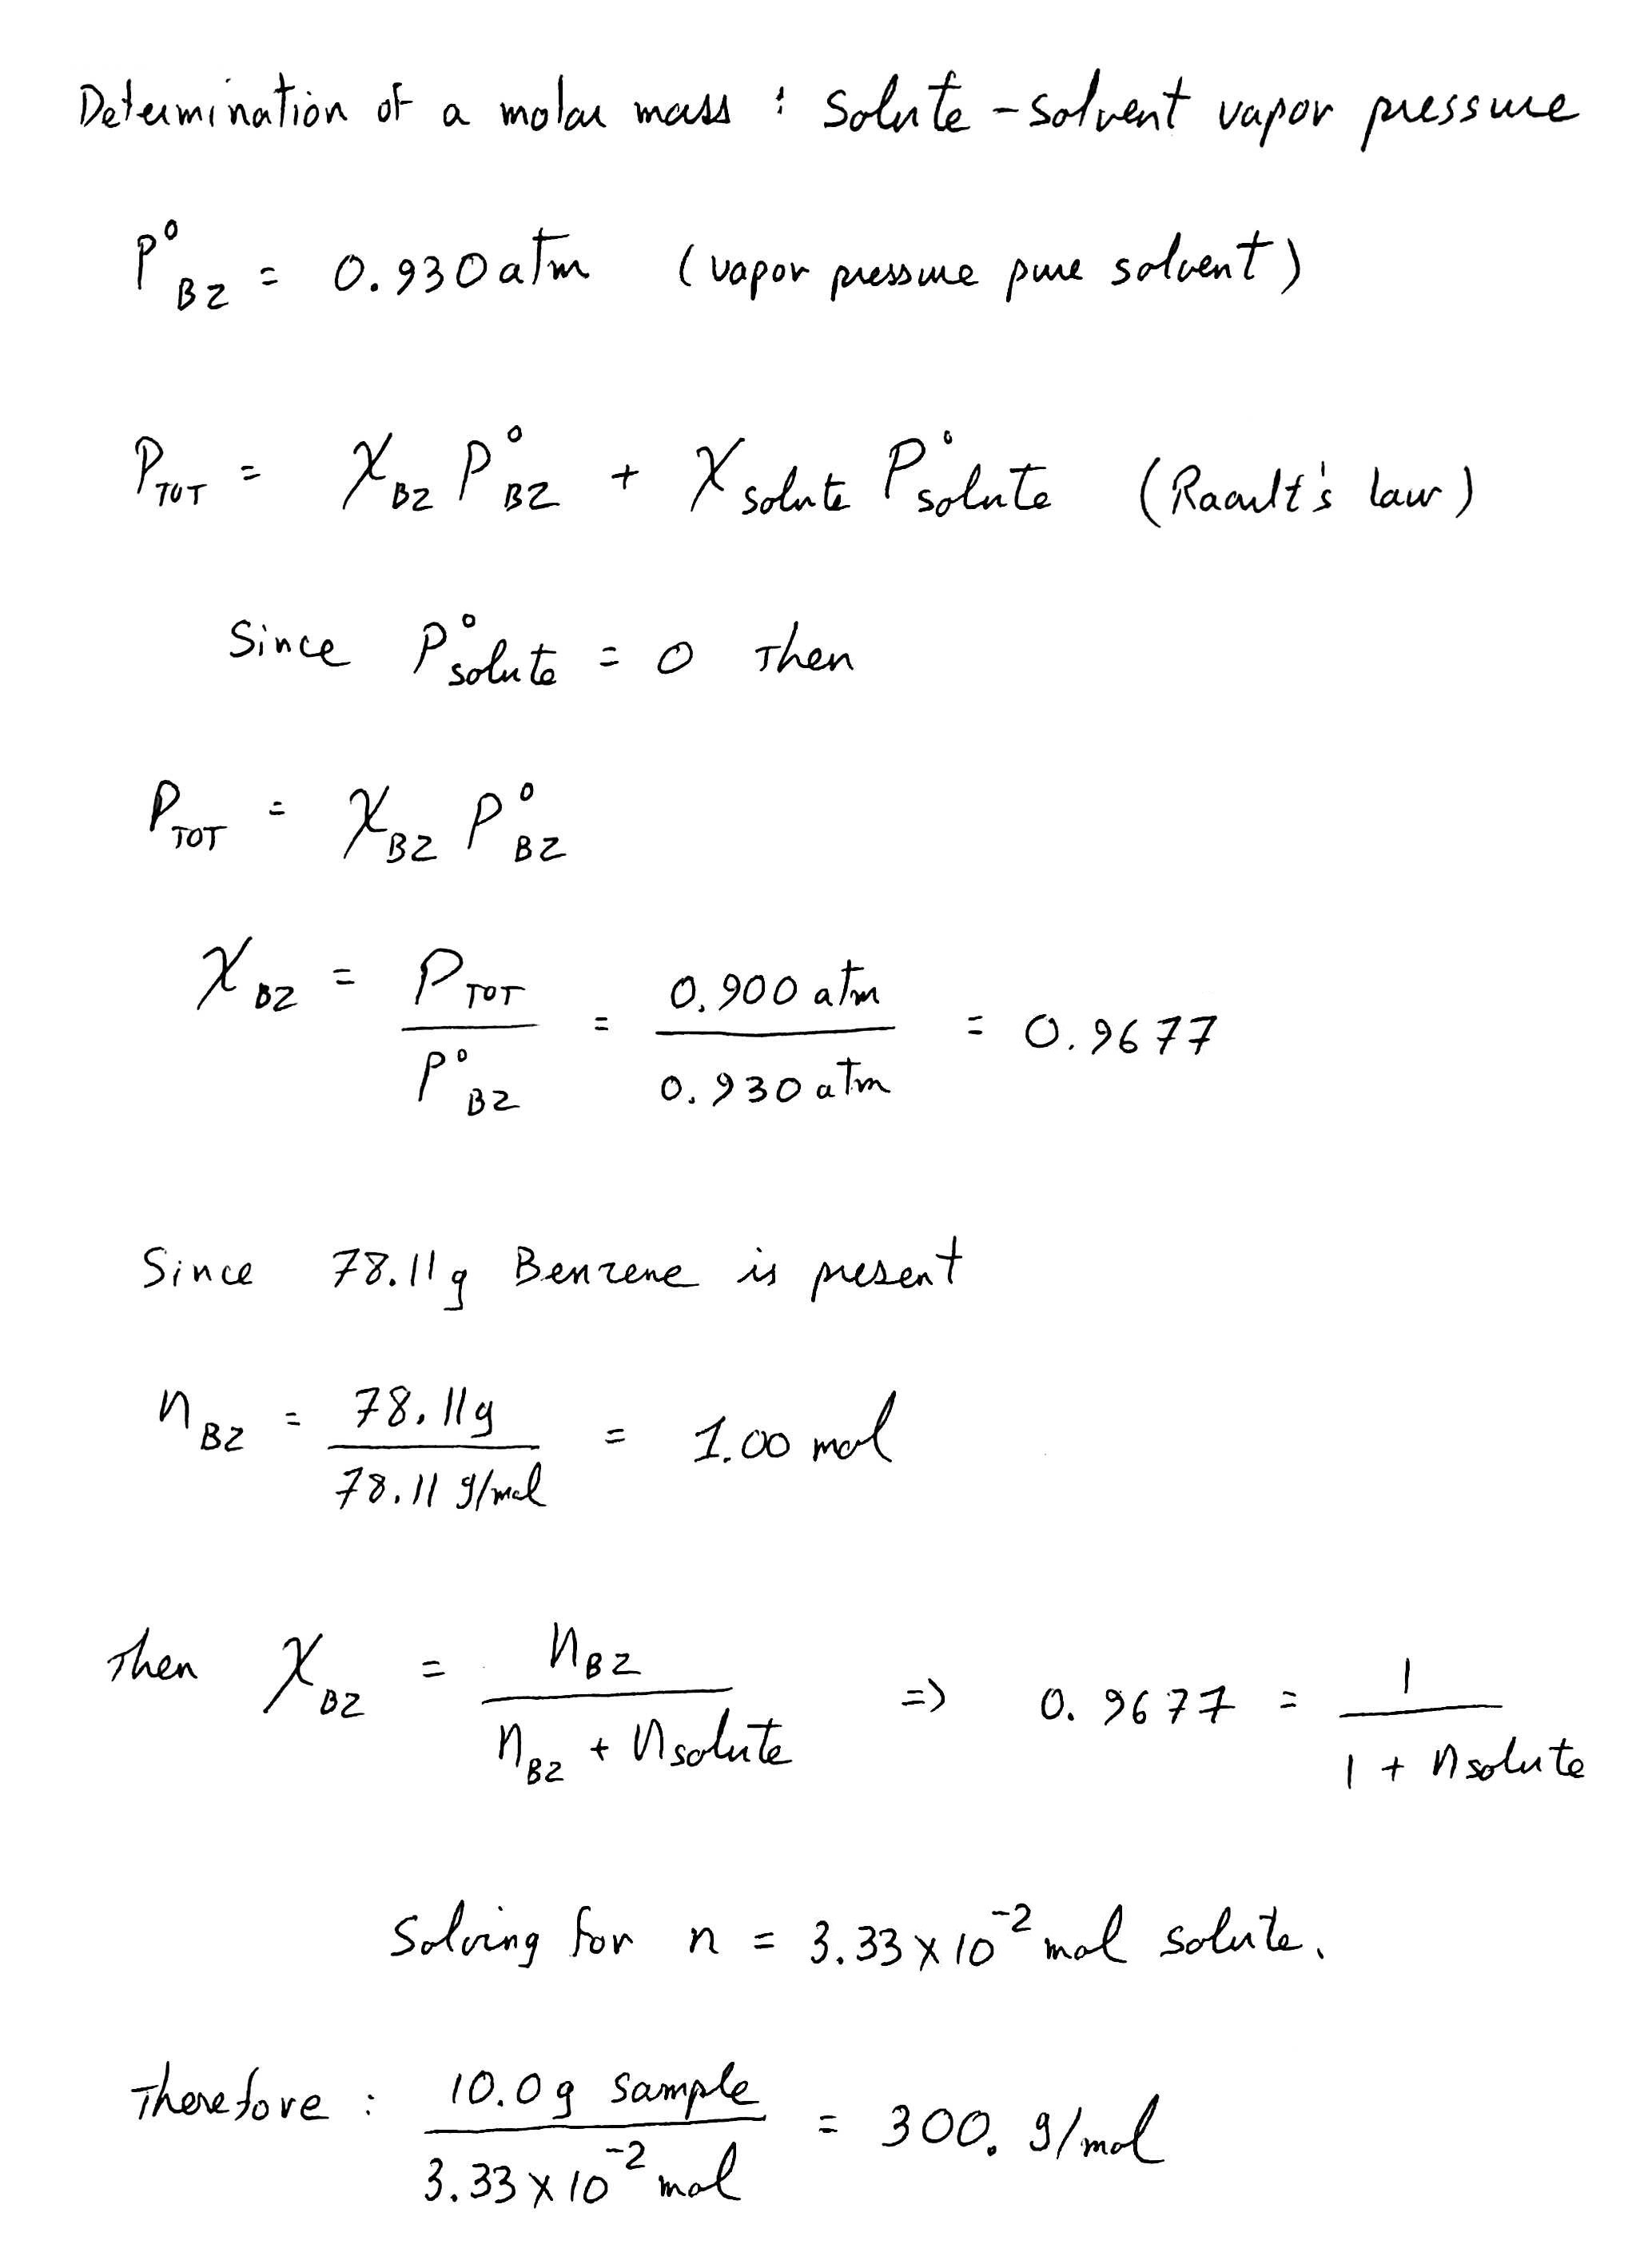 Determination of a molar mass : Solute - solvent vapor pressure
P°BZ = 0.930 atm (vapor pressure pure solvent)
PTOT = XBZ P°BZ + Xsolute P°solute (Raoult's law)
Since P°solute = 0 Then
PTOT = XBZ P°BZ
XBZ = PTOT / P°BZ = 0.900 atm / 0.930 atm = 0.9677
Since 78.11g Benzene is present
nBZ = 78.11g / 78.11 g/mol = 1.00 mol
Then XBZ = nBZ / nBZ + nsolute => 0.9677 = 1 / 1 + nsolute
Solving for n = 3.33 x 10⁻² mol solute.
Therefore : 10.0g sample / 3.33 x 10⁻² mol = 300. g/mol